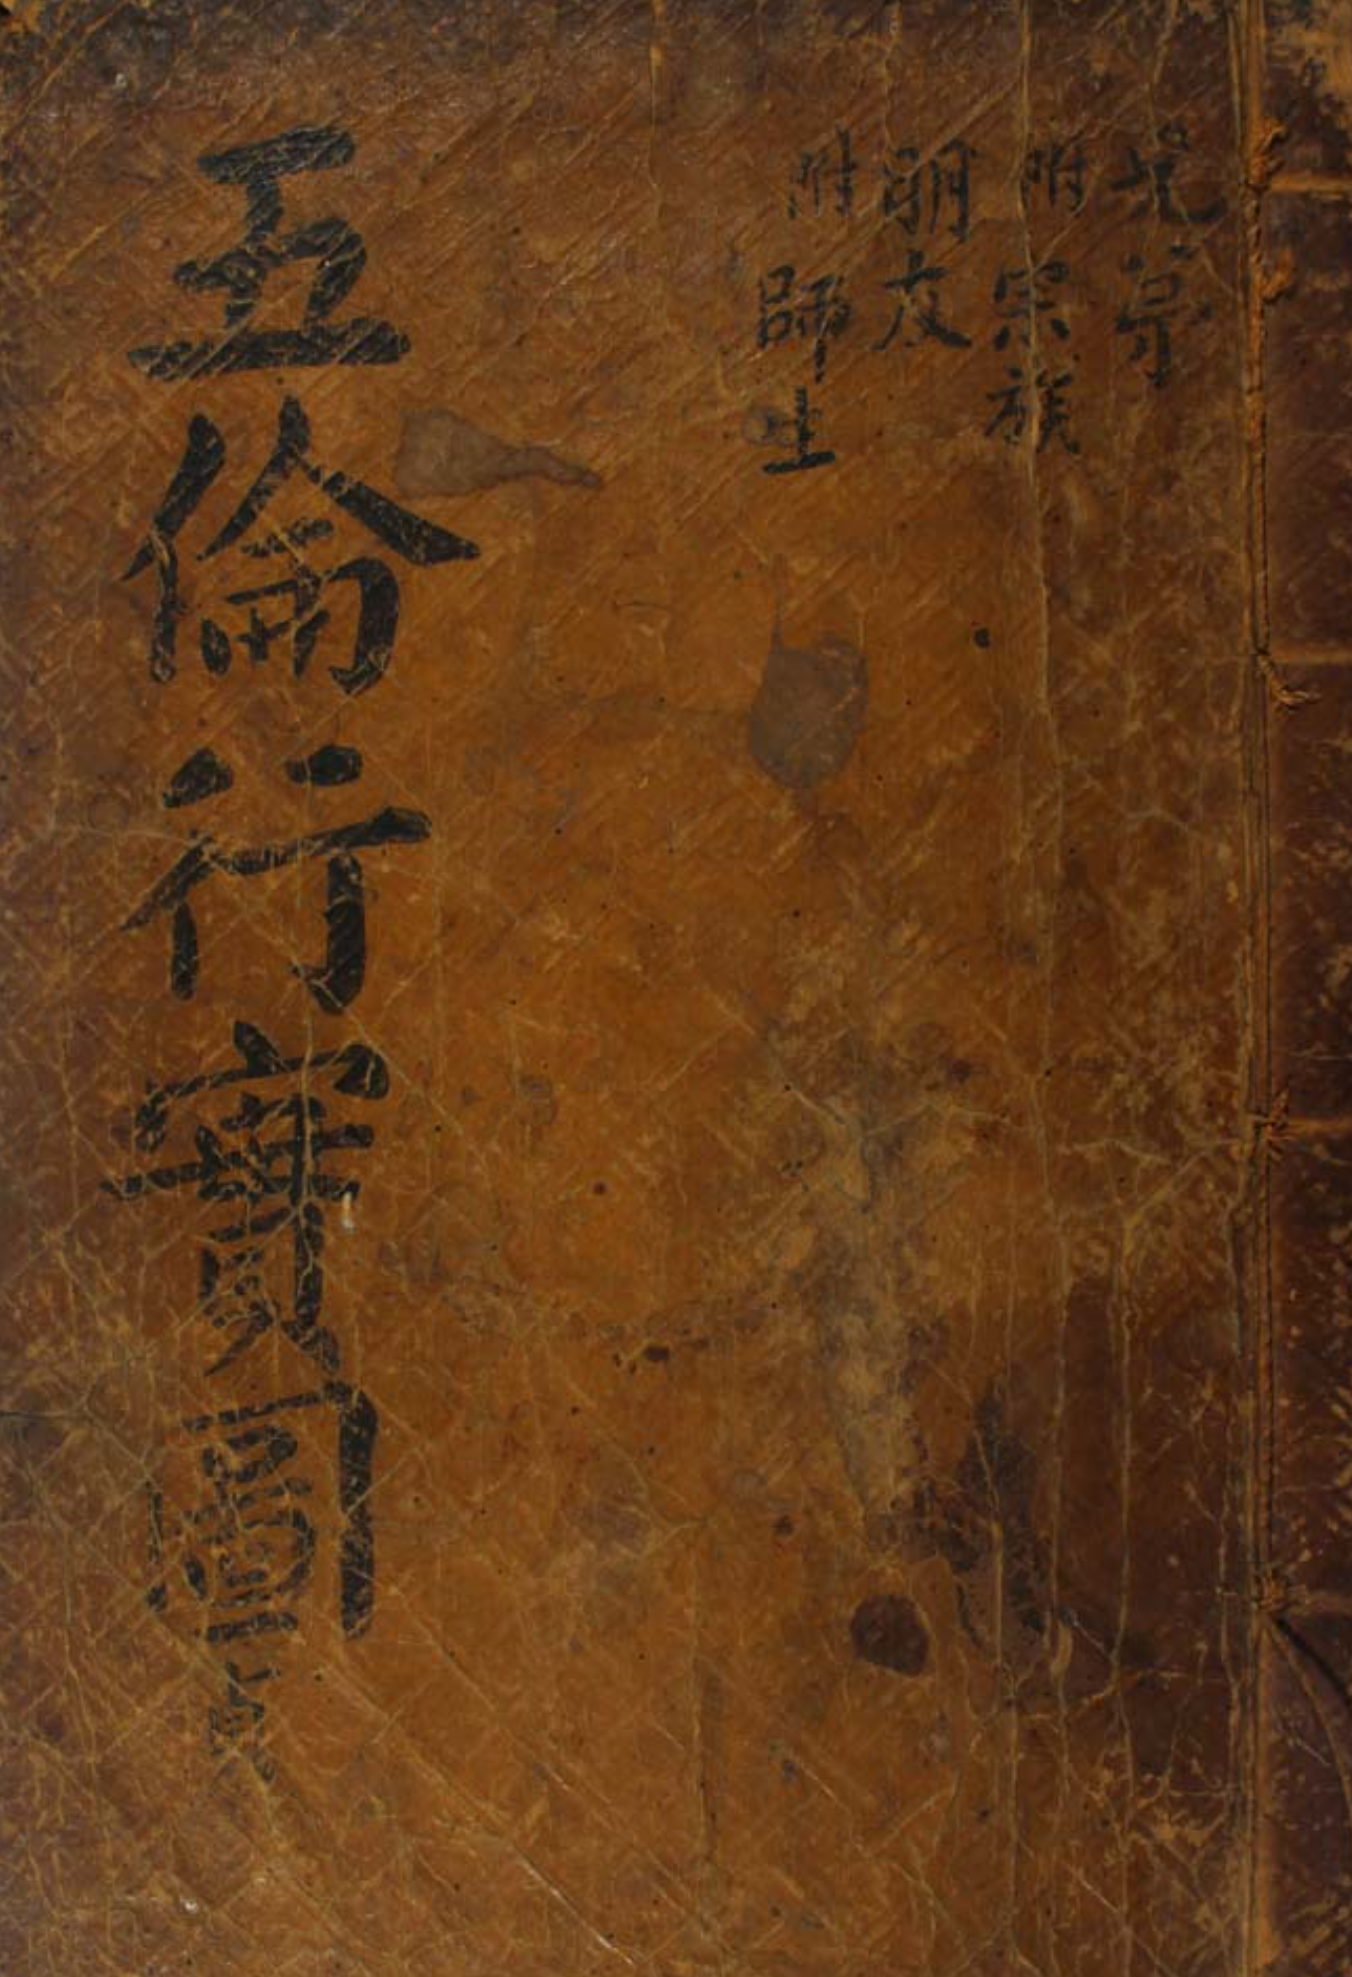 兄弟
附宗族
朋友
附師生
五倫行實圖 貞